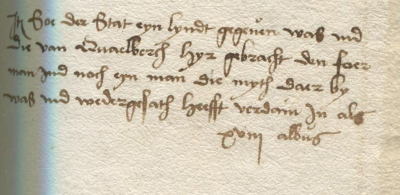 It Soe der Stat eyn lyndt gegeuen was ind
die van Quaelberch hyr gebracht den foer
man ind noch eyn man die myth daer by
was ind wedergesath heefft verdain in als
xviij albus